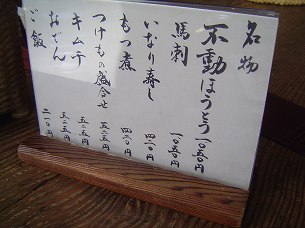 名物
不動ほうとう 一〇五〇円
馬刺 一〇五〇円
いなり寿し 四二〇円
もつ煮 四二〇円
つけもの盛合せ 五二五円
キムチ 五二五円
おでん 五二五円
ご飯 二一〇円